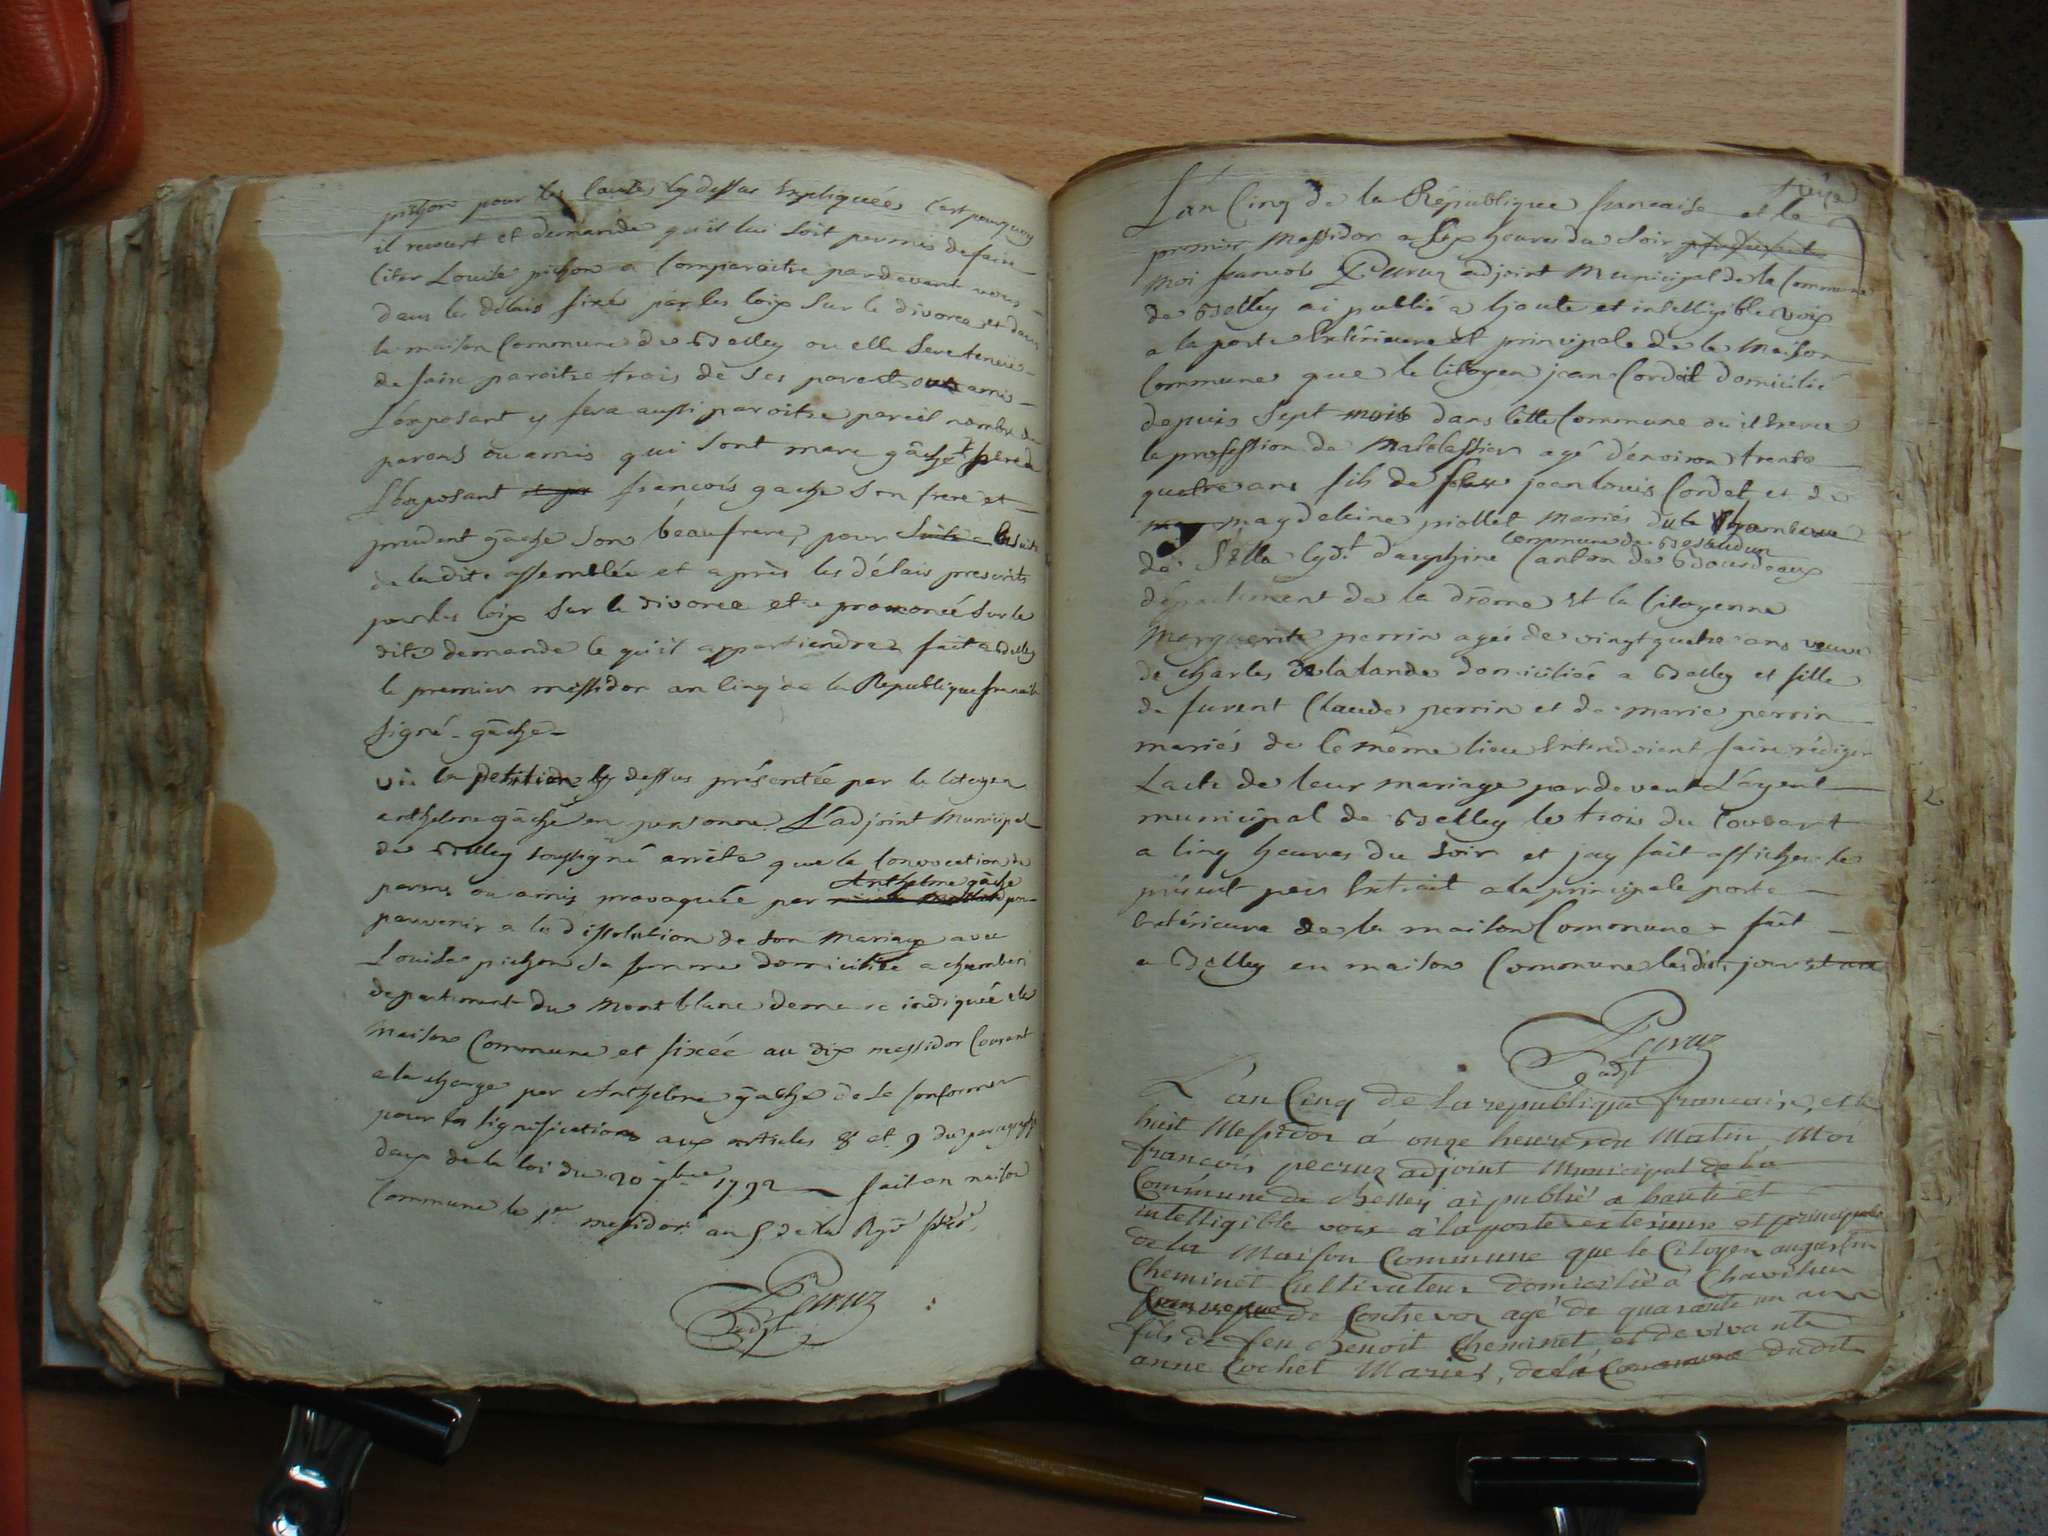 pichon pour les causes cy dessus Expliquées C'est pourquoy
il requert et demande qu'il lui soit permis de faire
citer Louise pichon a Comparoitre pardevant vous
dans les délais fixés par les loix sur le divorce et dans
la maison Commune de Belley ou elle sera tenüe
de faire paroitre trois de ses parents ou amis
L'exposant y fera aussi paroitre pareil nombre de
parens ou amis qui sont marc gâche père de
L'exposant françois gache son frere et
prudent gâche son beaufrere, pour Suite
de la dite assemblée et après les délais prescrits
par les loix sur le divorce etre prononcé sur la
dite demande ce qu'il appartiendra fait a Belley
le premier messidor an Cinq de la Republique francaise
signé - gâche -
vû la petition cy dessus présentée par le Citoyen
anthelme gâche en personne L'adjoint Municipal
de Belley soussigné arrète que la Convocation de
parens ou amis provoquée par Anthelme gâche pour
parvenir a la dissolution de son Mariage avec
Louise pichon sa femme domiciliée a chamberi
departement du Mont blanc demeure indiquée a la
Maison Commune et fixée au dix messidor Courant
a la charge par Anthelme gâche de se Conformer
pour les significations aux articles 8 et 9 du paragraphe
deux de la loi du 20 7bre 1792 fait en maison
Commune le 1er messidor an 5 de la
Peruz
adjt
L'an Cinq de la République francaise et le
premier Messidor a Six heures du Soir
Moi francois Peruz adjoint Municipal de la Commune
de Belley ai publié a haute et intelligible voix
a la porte Extérieure et principale de la Maison
Commune que le Citoyen jean Cordeil domicilié
depuis Sept mois dans cette Commune ou il Exerce
la profession de Matelassier agé d'environ trente
quatre ans fils de feu jean louis Cordeil et de
magdeleine piollet mariés de la
Commune de Besaudun
de cydt dauphiné Canton de Bourdeaux
département de la drôme Et la Citoyenne
Marguerite perrin agée de vingt quatre ans veuve
de charles Delalande domiciliée a Belley et fille
de furent Claude perrin et de marie perrin
mariés de Ce même lieu Entendoient faire rédiger
L'acte de leur mariage pardevant L'agent
municipal de Belley le trois du Courant
a Cinq heures du Soir et jay fait afficher le
présent par Extrait a la principale porte
Extérieure de la maison Commune fait
a Belley en maison Commune lesdits jour et an
Peruz
adjt
L'an Cinq de la republique francaise, et le
huit Messidor à onze heures du Matin Moi
francois peruz adjoint Municipal de la
Commune de Belley ai publié a haute et
intelligible voix a la porte exterieure et principale
de la Maison Commune que le Citoyen augustin
Cheminet Cultivateur domicilié à
Commune de Contrevoz agé de quarante un ans
fils de feu Benoit Cheminet et de vivante
anne Cochet Mariés, de la Commune dudit